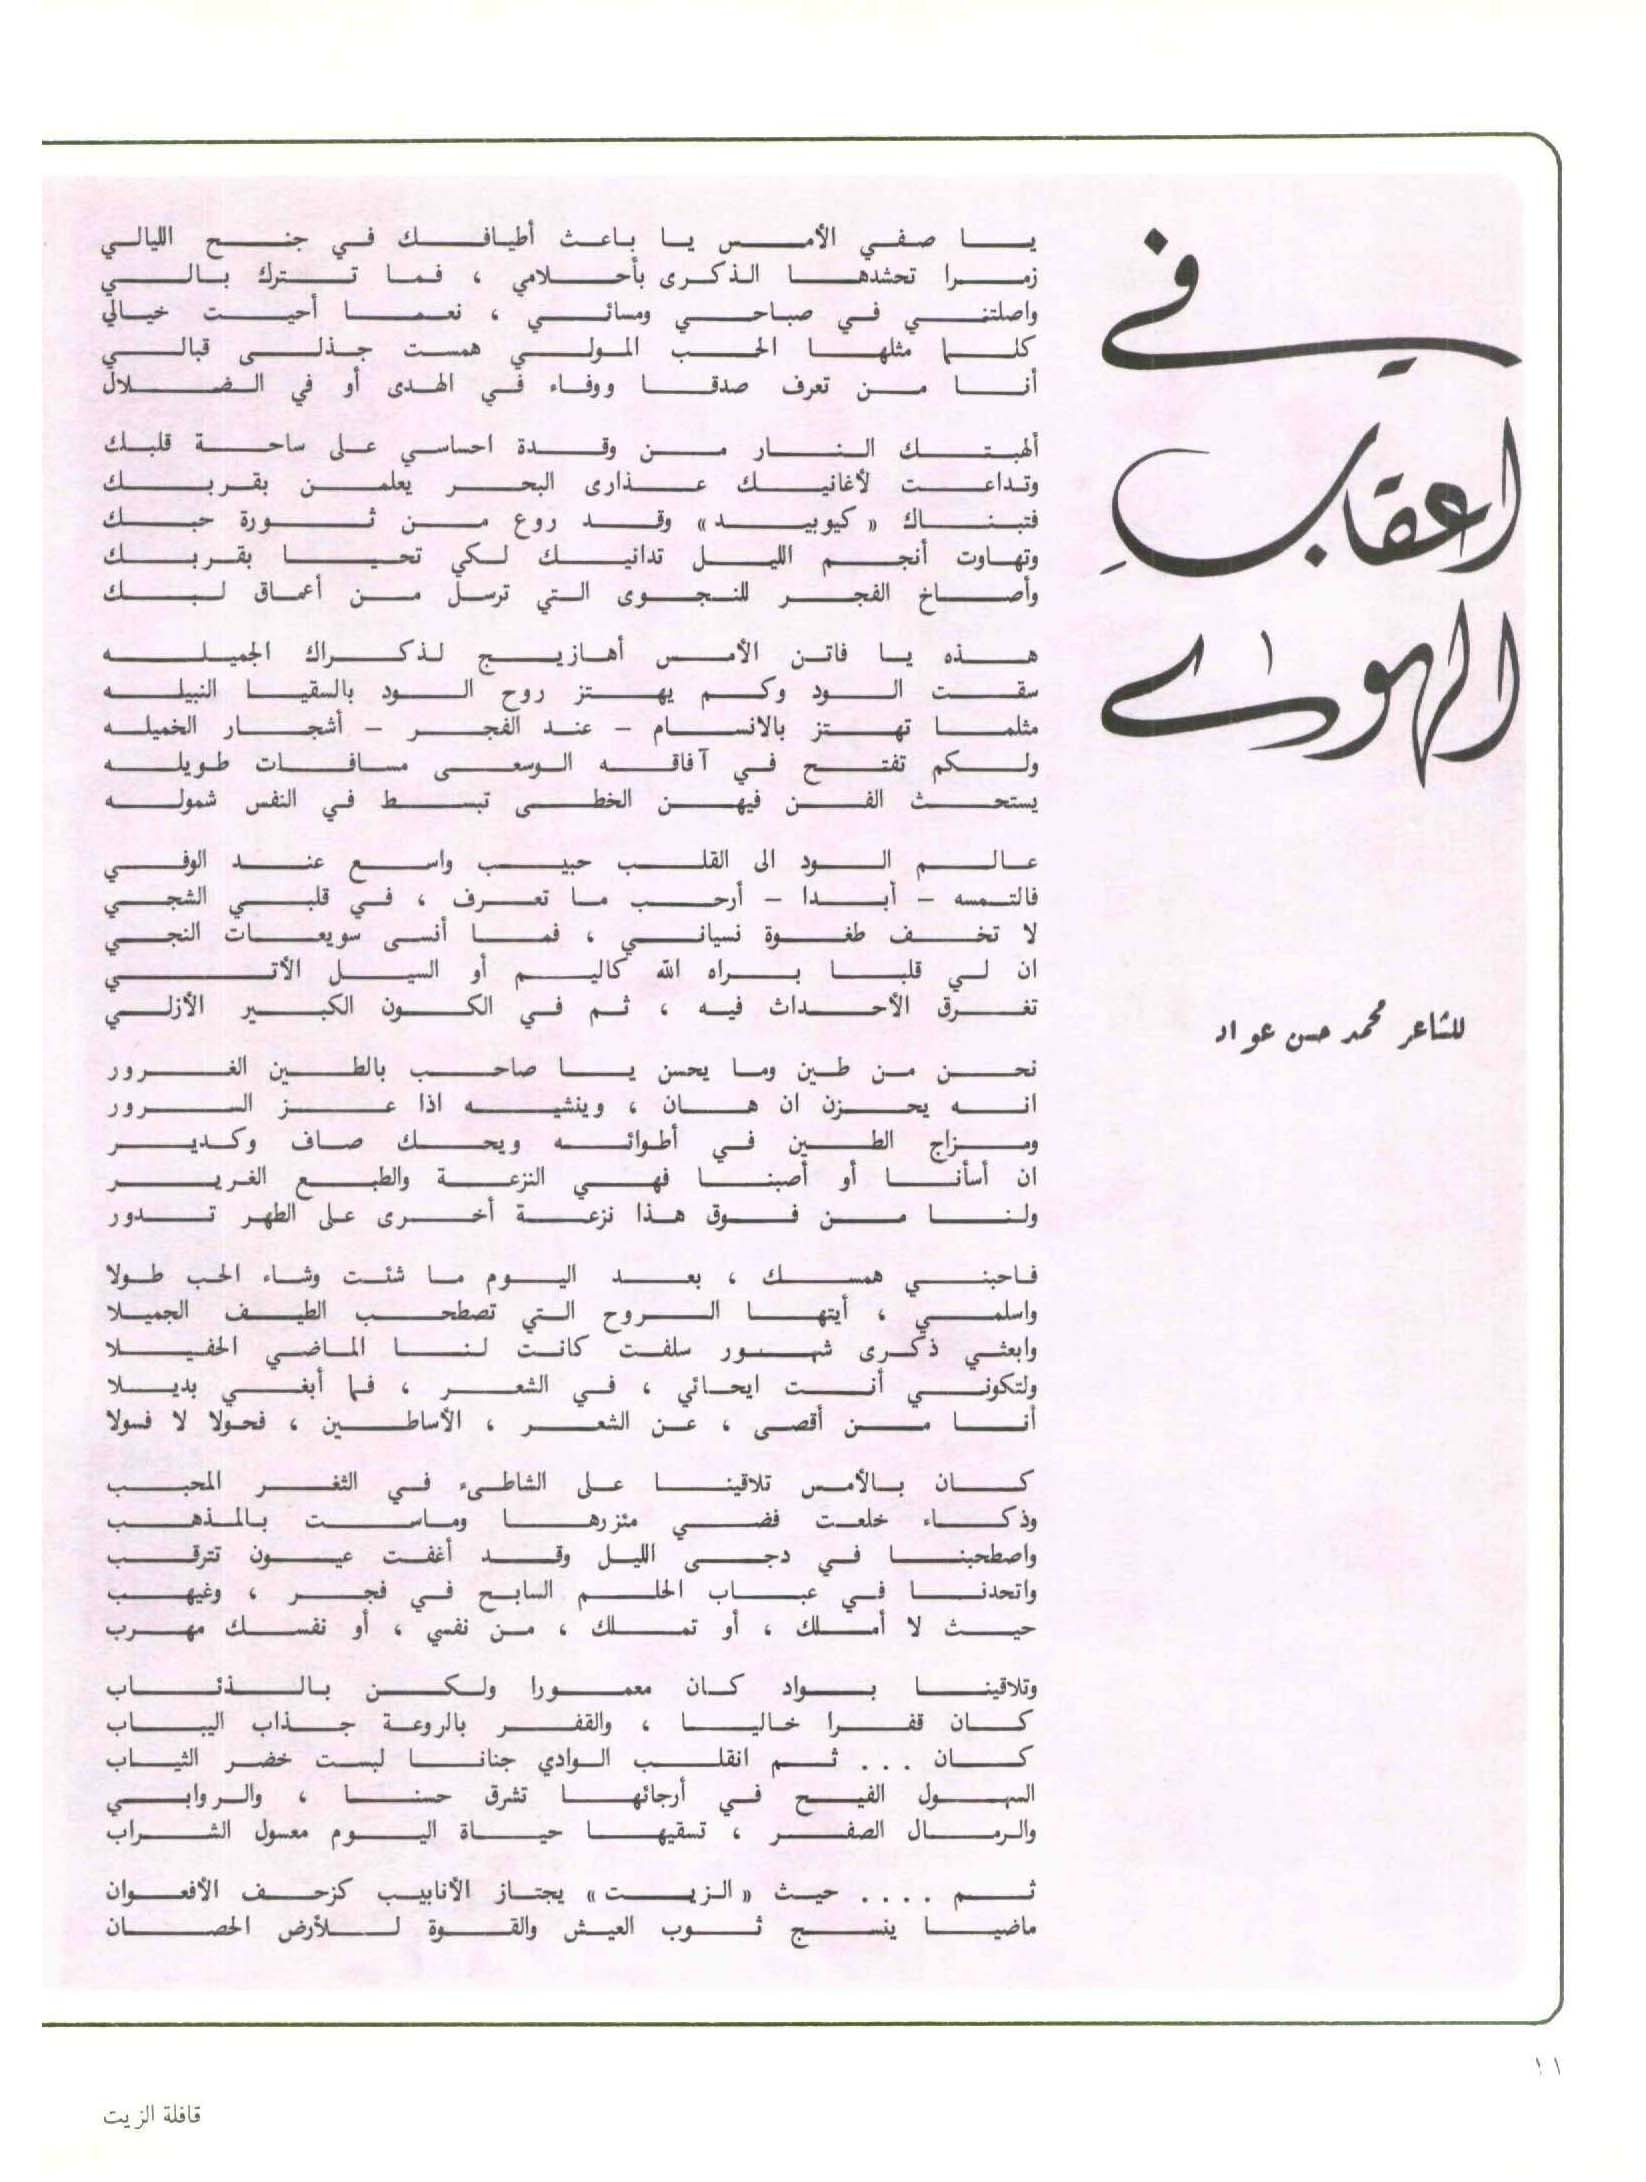 في
اعقاب
الهوى
للشاعر محمد حسن عواد
يا صفي الأمس يا باعث أطيافك في جنح الليالي
زمرا تحشدها الذكرى بأحلامي ، فما تترك بالي
واصلتني في صباحي ومسائي ، نعما أحيت خيالي
كلما مثلها الحب المولي همست جذلى قبالي
أنا من تعرف صدقا ووفاء في الهدى أو في الضلال
ألهبتك النار من وقدة احساسي على ساحة قلبك
وتداعت لأغانيك عذارى البحر يعلمن بقربك
فتبناك « كيوبيد» وقد روع من ثورة حبك
وتهاوت أنجم الليل تدانيك لكي تحيا بقربك
وأصاخ الفجر للنجوى التي ترسل من أعماق لبك
هذه يا فاتن الأمس أهازيج لذكراك الجميله
سقت الود وكم يهتز روح الود بالسقيا النبيله
مثلما تهتز بالانسام – عند الفجر – أشجار الخميله
ولكم تفتح في آفاقه الوسعى مسافات طويله
يستحث الفن فيهن الخطى تبسط في النفس شموله
عالم الود الى القلب حبيب واسع عند الوفي
فالتمسه – أبدا – أرحب ما تعرف ، في قلبي الشجي
لا تخف طغوة نسياني ، فما أنسى سويعات النجي
ان لي قلبا براه الله كاليم أو السيل الأتي
تغرق الأحداث فيه ، ثم في الكون الكبير الأزلي
نحن من طين وما يحسن يا صاحب بالطين الغرور
انه يحزن ان هان ، وينشيه اذا عز السرور
ومزاج الطين في أطوائه ويحك صاف وكدير
ان أسأنا أو أصبنا فهي النزعة والطبع الغرير
ولنا من فوق هذا نزعة أخرى على الطهر تدور
فاحبني همسك ، بعد اليوم ما شئت وشاء الحب طولا
واسلمي ، أيتها الروح التي تصطحب الطيف الجميلا
وابعثي ذكرى شهور سلفت كانت لنا الماضي الحفيلا
ولتكوني أنت ايحائي ، في الشعر ، فما أبغي بديلا
أنا من أقصى ، عن الشعر ، الأساطين ، فحولا لا فسولا
كان بالأمس تلاقينا على الشاطىء في الثغر المحبب
وذكاء خلعت فضي مئزرها وماست بالمذهب
واصطحبنا في دجى الليل وقد أغفت عيون تترقب
واتحدنا في عباب الحلم السابح في فجر ، وغيهب
حيث لا أملك ، أو تملك ، من نفسي ، أو نفسك مهرب
وتلاقينا بواد كان معمورا ولكن بالذئاب
كان قفرا خاليا ، والقفر بالروعة جذاب اليباب
كان ... ثم انقلب الوادي جنانا لبست خضر الثياب
السهول الفيح في أرجائها تشرق حسنا ، والروابي
والرمال الصفر ، تسقيها حياة اليوم معسول الشراب
ثم .... حيث « الزيت» يجتاز الأنابيب كزحف الأفعوان
ماضيا ينسج ثوب العيش والقوة للأرض الحصان
١١
قافلة الزيت